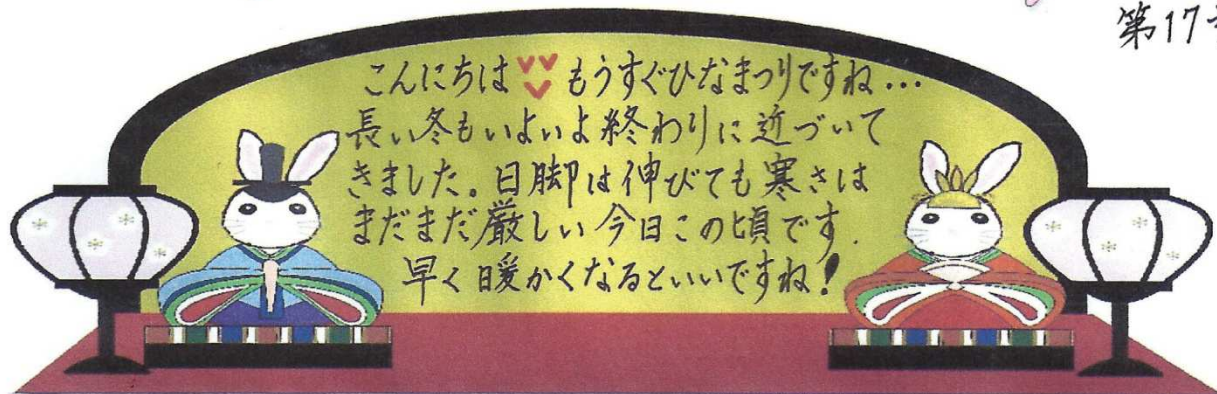 第17
こんにちは もうすぐひなまつりですね…
長い冬もいよいよ終わりに近づいて
きました。日脚は伸びても寒さは
まだまだ厳しい今日この頃です.
早く暖かくなるといいですね!